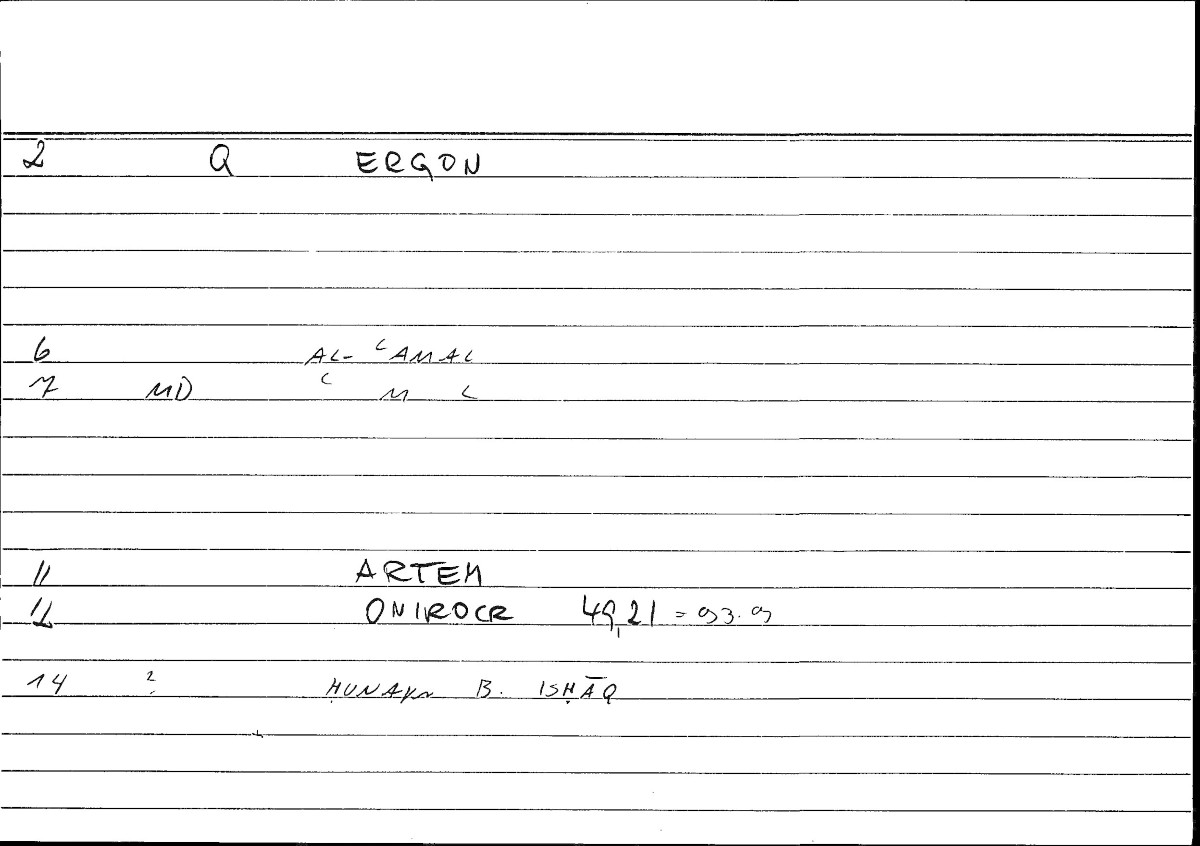 2 Q ERGON
6 AL- ʿAMAL
7 MD ʿ M L
11 ARTEM
12 ONIROCR 49,21 = 93.9
14 ? ḤUNAYN B. ISḤĀQ